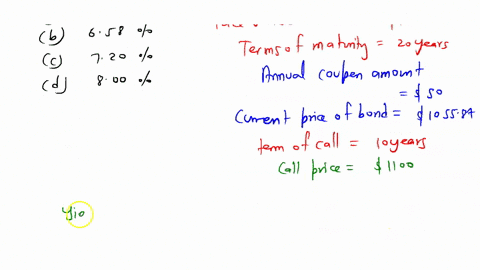 (b) 6.58 %
(c) 7.20 %
(d) 8.00 %
Terms of maturity = 20 years
Annual coupen amount
= $50
Current price of bond = $1055.84
term of call = 10 years
Call price = $1100
Yio